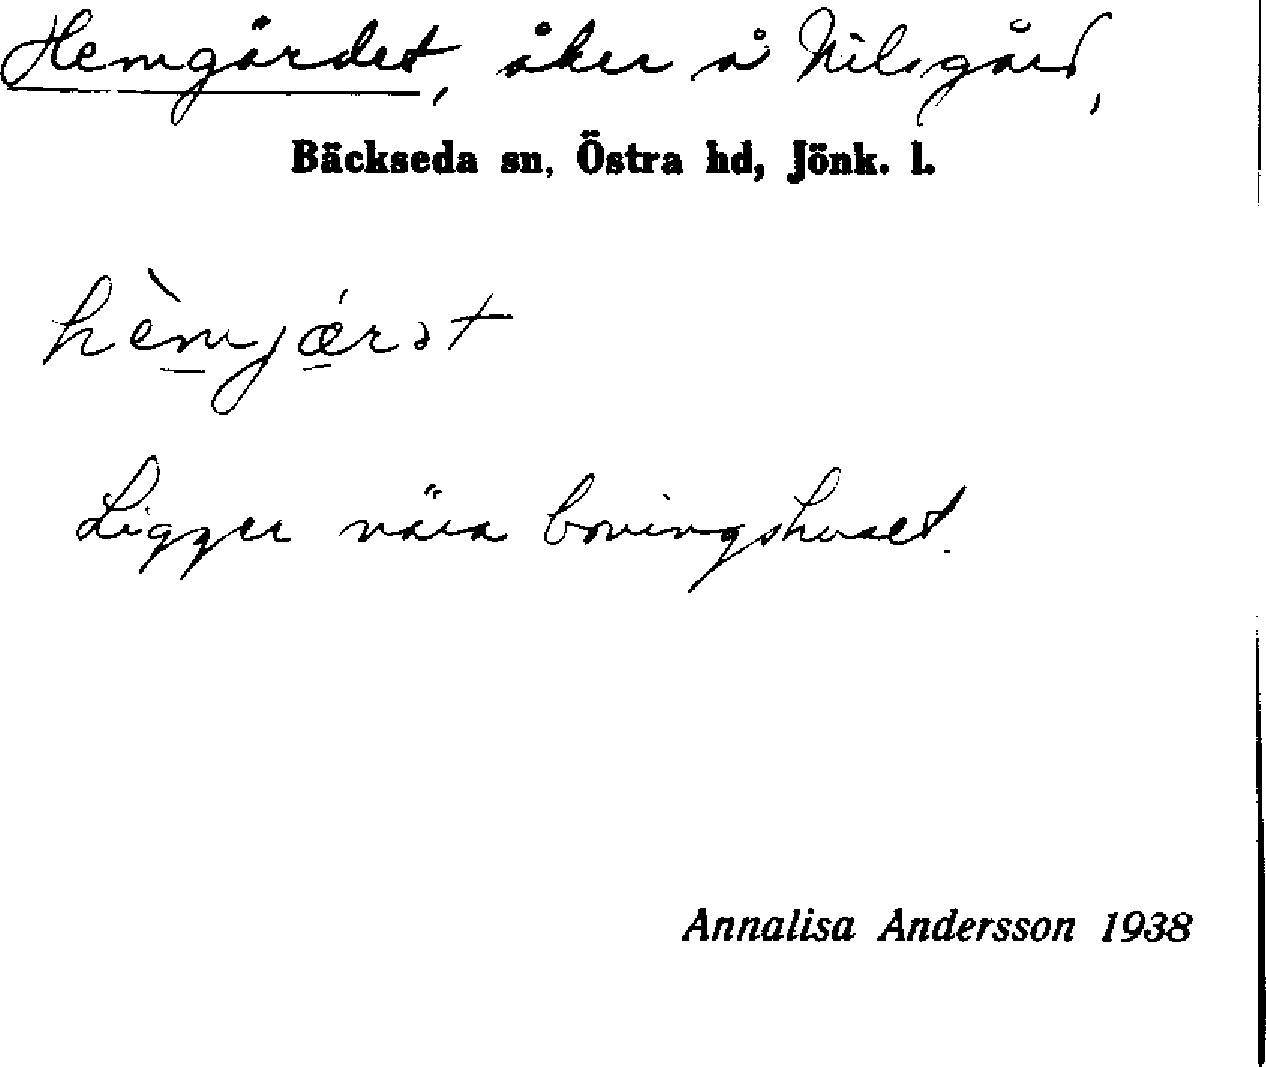 Hemgärdet, åker å Nilsgård,
Bäckseda sn, Östra hd, Jönk. l.
hèmjǽrət
Ligger nära boningshuset.
Annalisa Andersson 1938